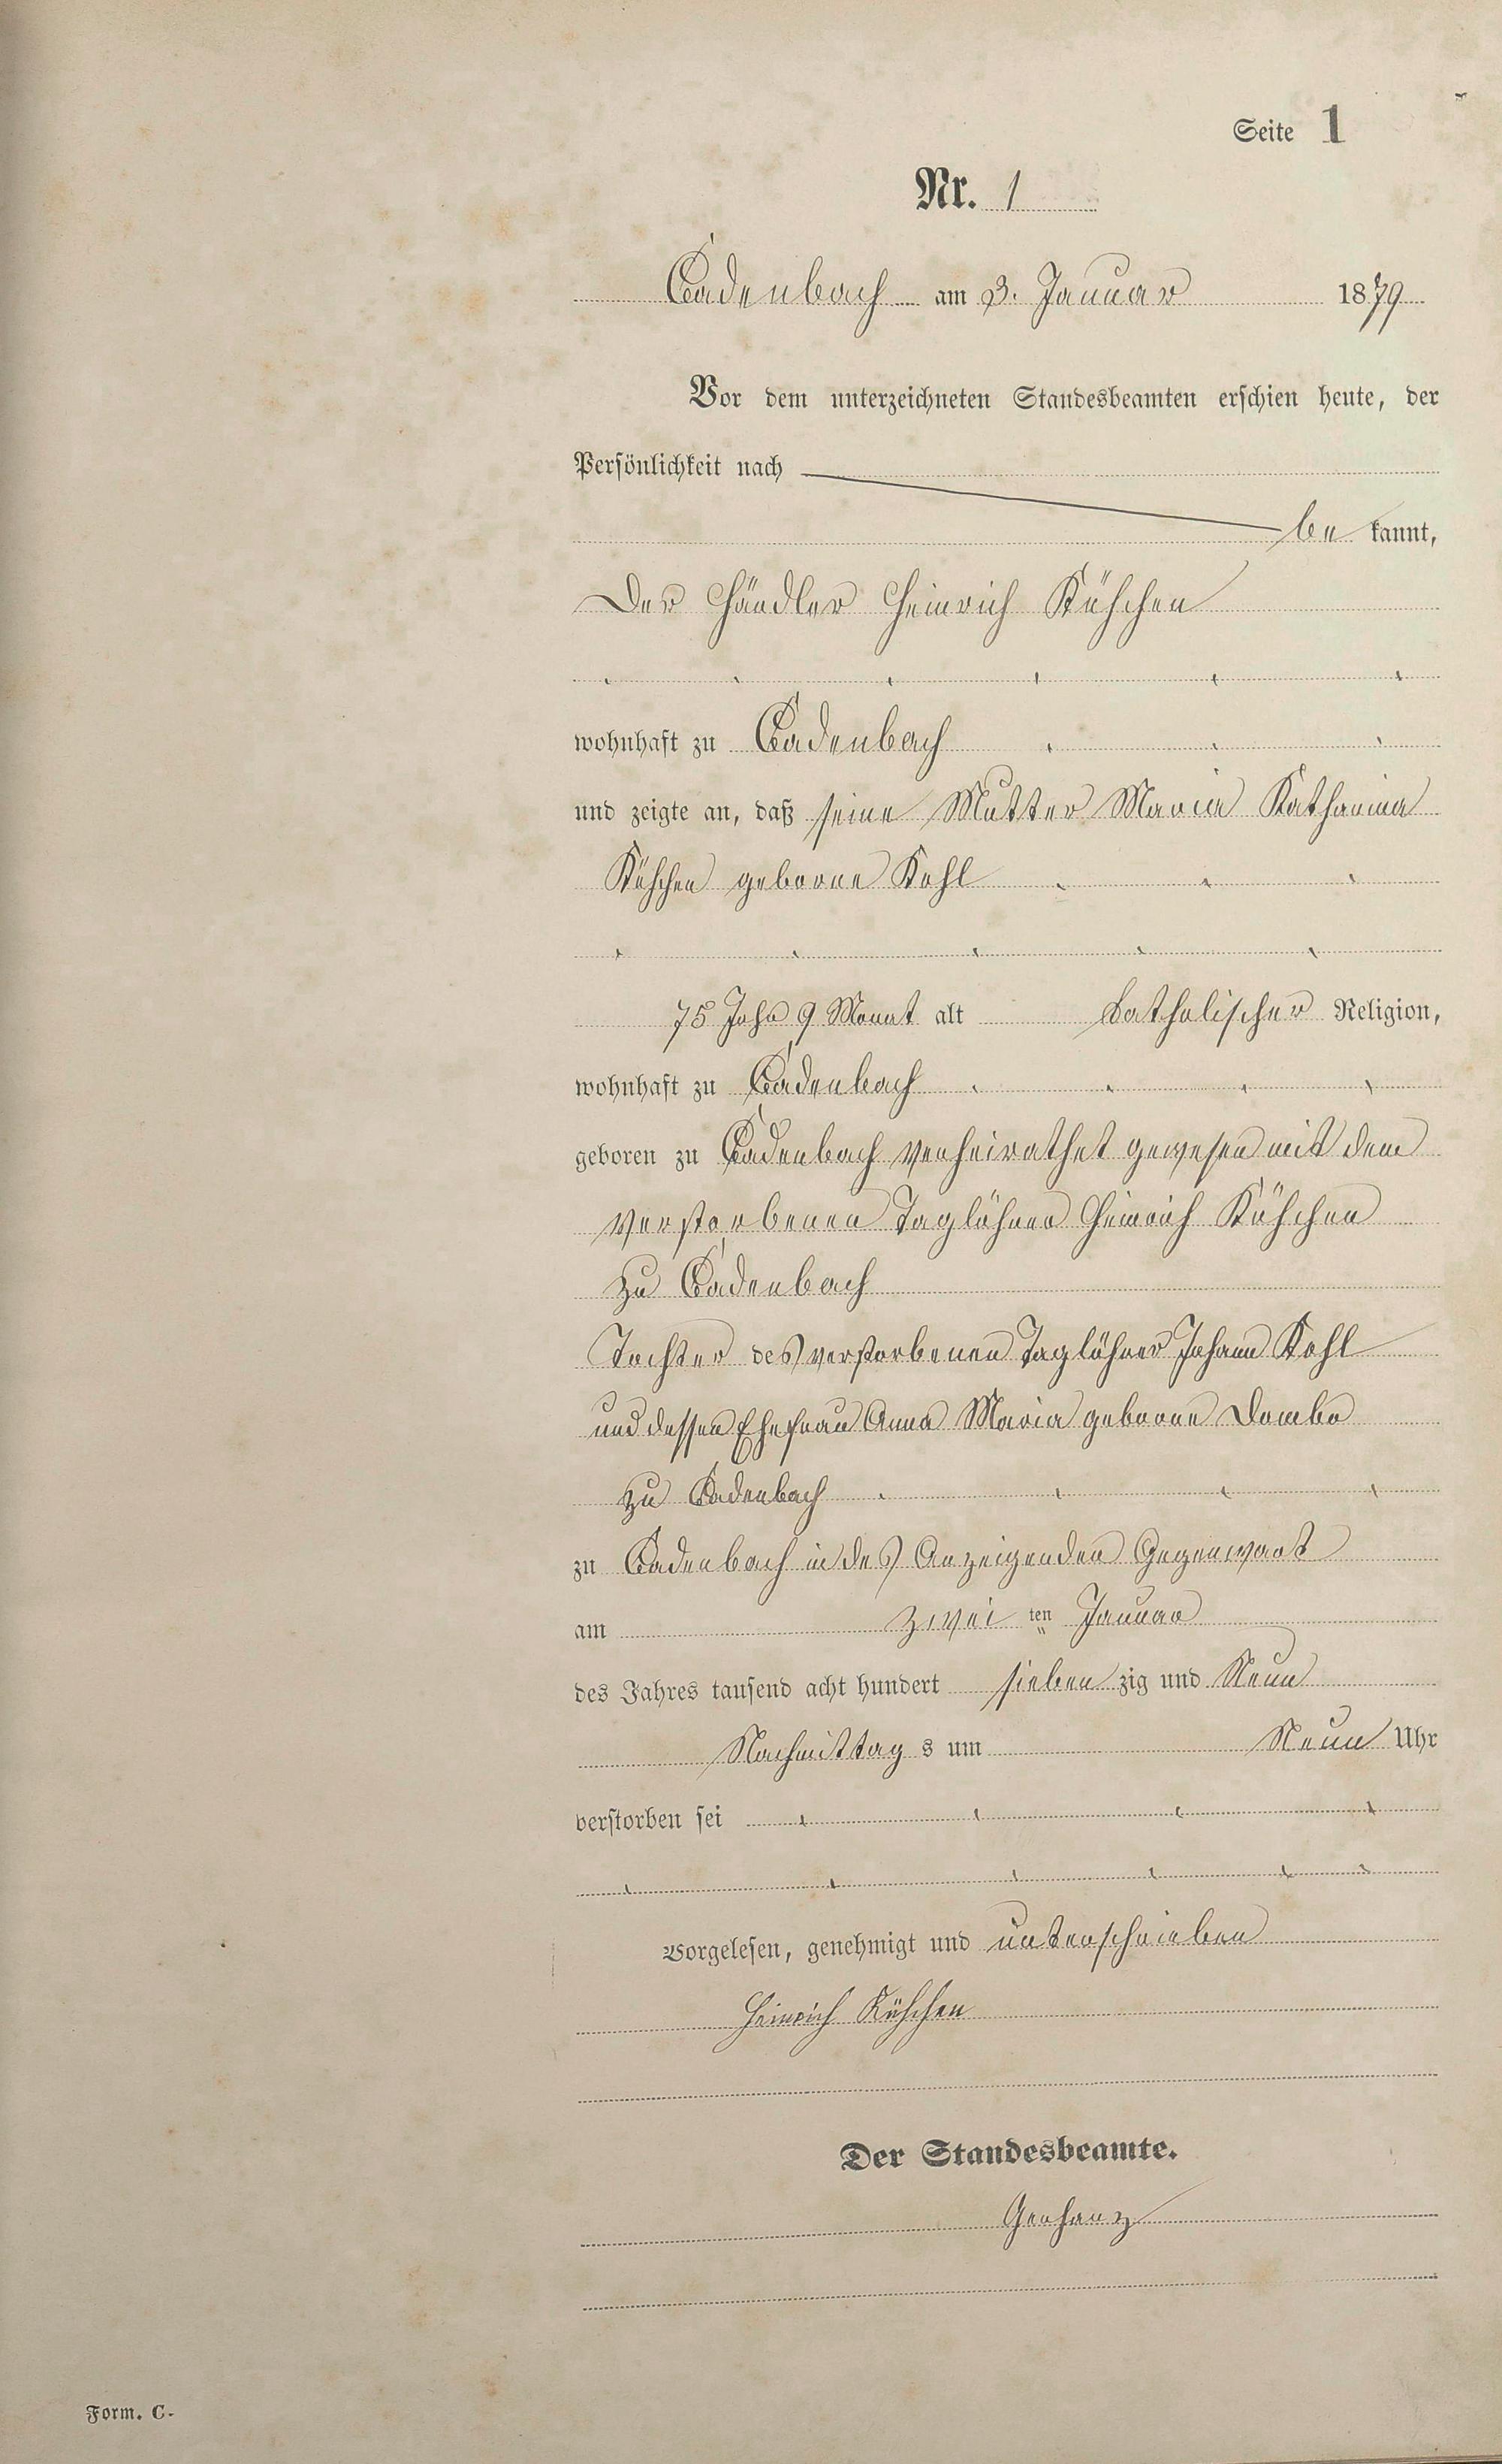 Seite 1
Nr. 1
Cadenbach am 3. Januar 1879
Vor dem unterzeichneten Standesbeamten erschien heute, der
Persönlichkeit nach
be kannt,
Der Händler Heinrich Kühchen
wohnhaft zu Cadenbach
und zeigte an, daß seine Mutter Maria Katharina
Kühchen geborne Kohl
75 Jahr 9 Monat alt katholischer Religion,
wohnhaft zu Cadenbach
geboren zu Cadenbach verheirathet gewesen mit dem
verstorbenen Taglöhner Heinrich Kühchen
zu Cadenbach
Tochter des verstorbenen Taglöhner Johann Kohl
und dessen Ehefrau Anna Maria geborne Dombo
zu Cadenbach
zu Cadenbach in des Anzeigenden Gegenwart
am zwei ten Januar
des Jahres tausend acht hundert sieben zig und Neun
Nachmittag s um Neun Uhr
verstorben sei
Vorgelesen, genehmigt und unterschrieben
Heinrich Kühchen
Der Standesbeamte.
Gerharz
Form. C.